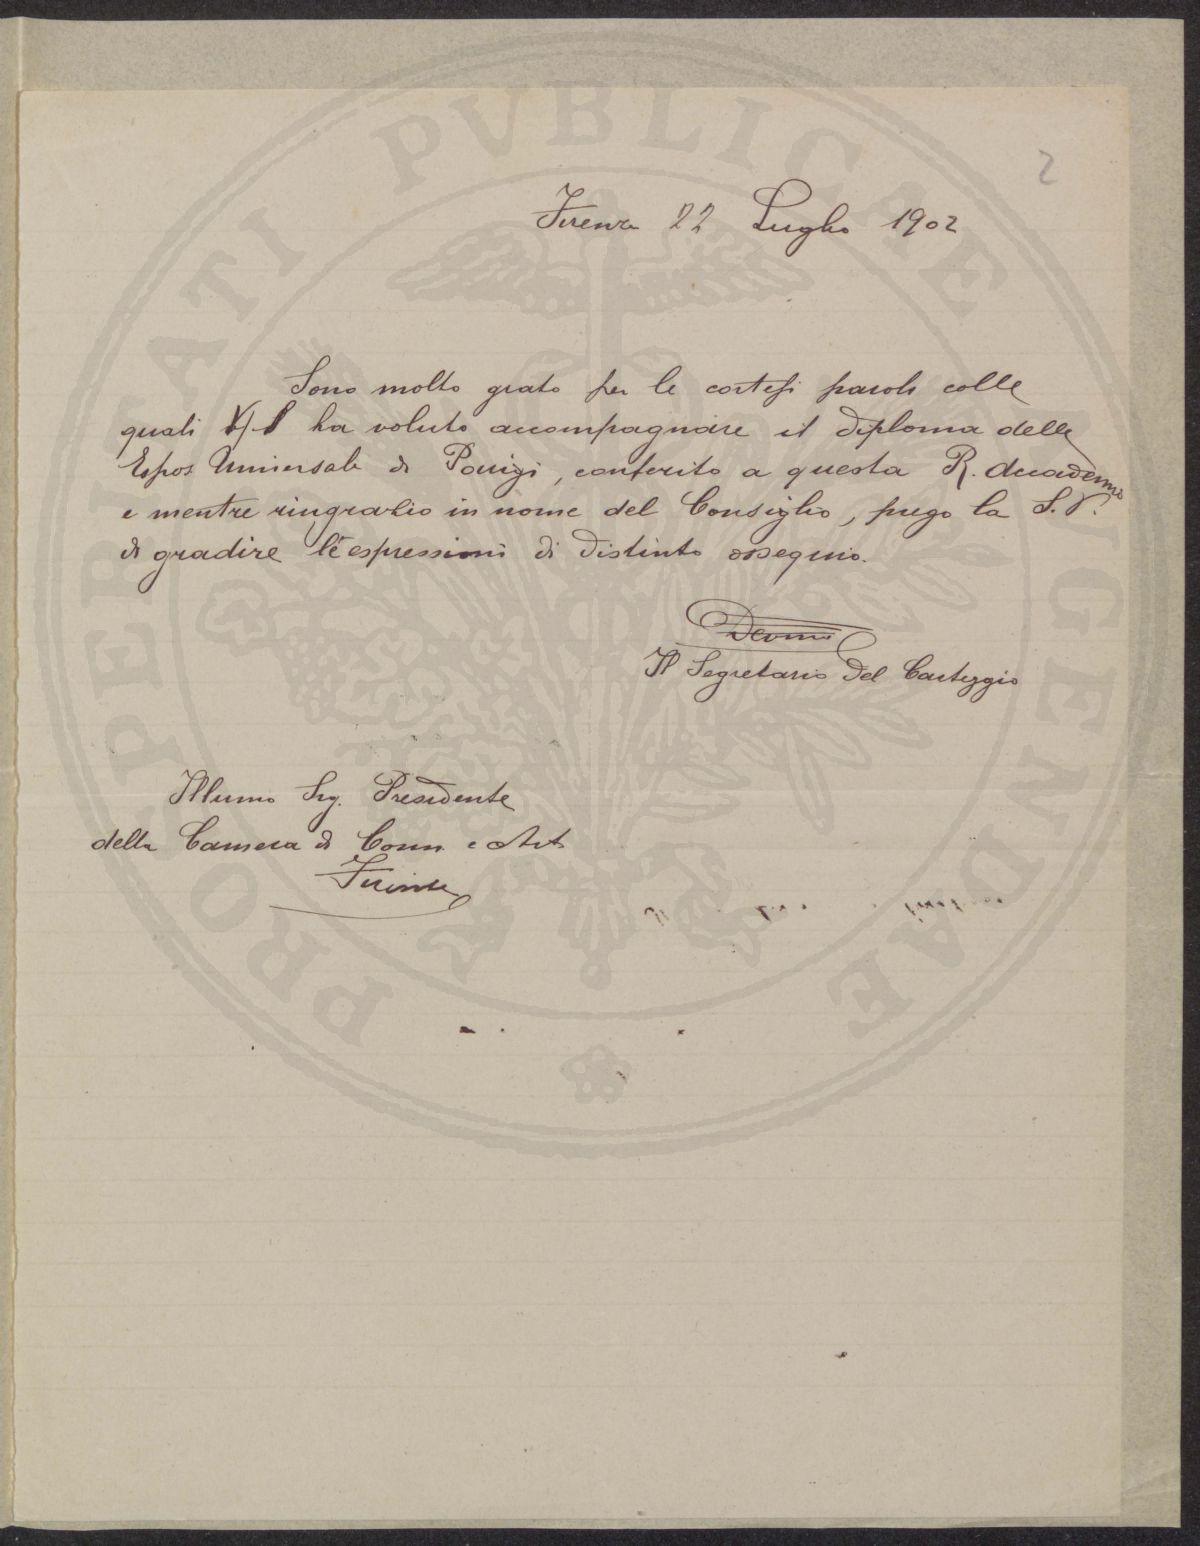 2
Firenze 22 Luglio 1902
Sono molto grato per le cortesi parole colle
quali V.S ha voluto accompagnare il diploma della
Espos Universale di Parigi, conferito a questa R. Accademia
e mentre ringrazio in nome del Consiglio, prego la S.V.
di gradire le espressioni di distinto ossequio.
Il Segretario del Carteggio
Illumo Sig. Presidente
della Camera di Comm. e Arti
Firenze
PROSPERITATI PVBLICAE AVGENDAE